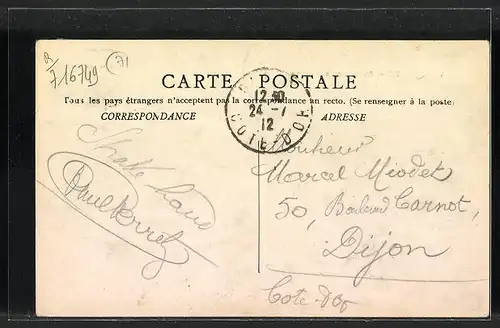 R/716749 (71)
CARTE POSTALE
Tous les pays étrangers n'acceptent pas la correspondance au recto. (Se renseigner à la poste)
CORRESPONDANCE
ADRESSE
12 30
24 - 7
12
COTE-D'OR
Shake hand
Paul Perret
Monsieur
Marcel Miodet
50, Boulevard Carnot,
Dijon
Côte-d'Or